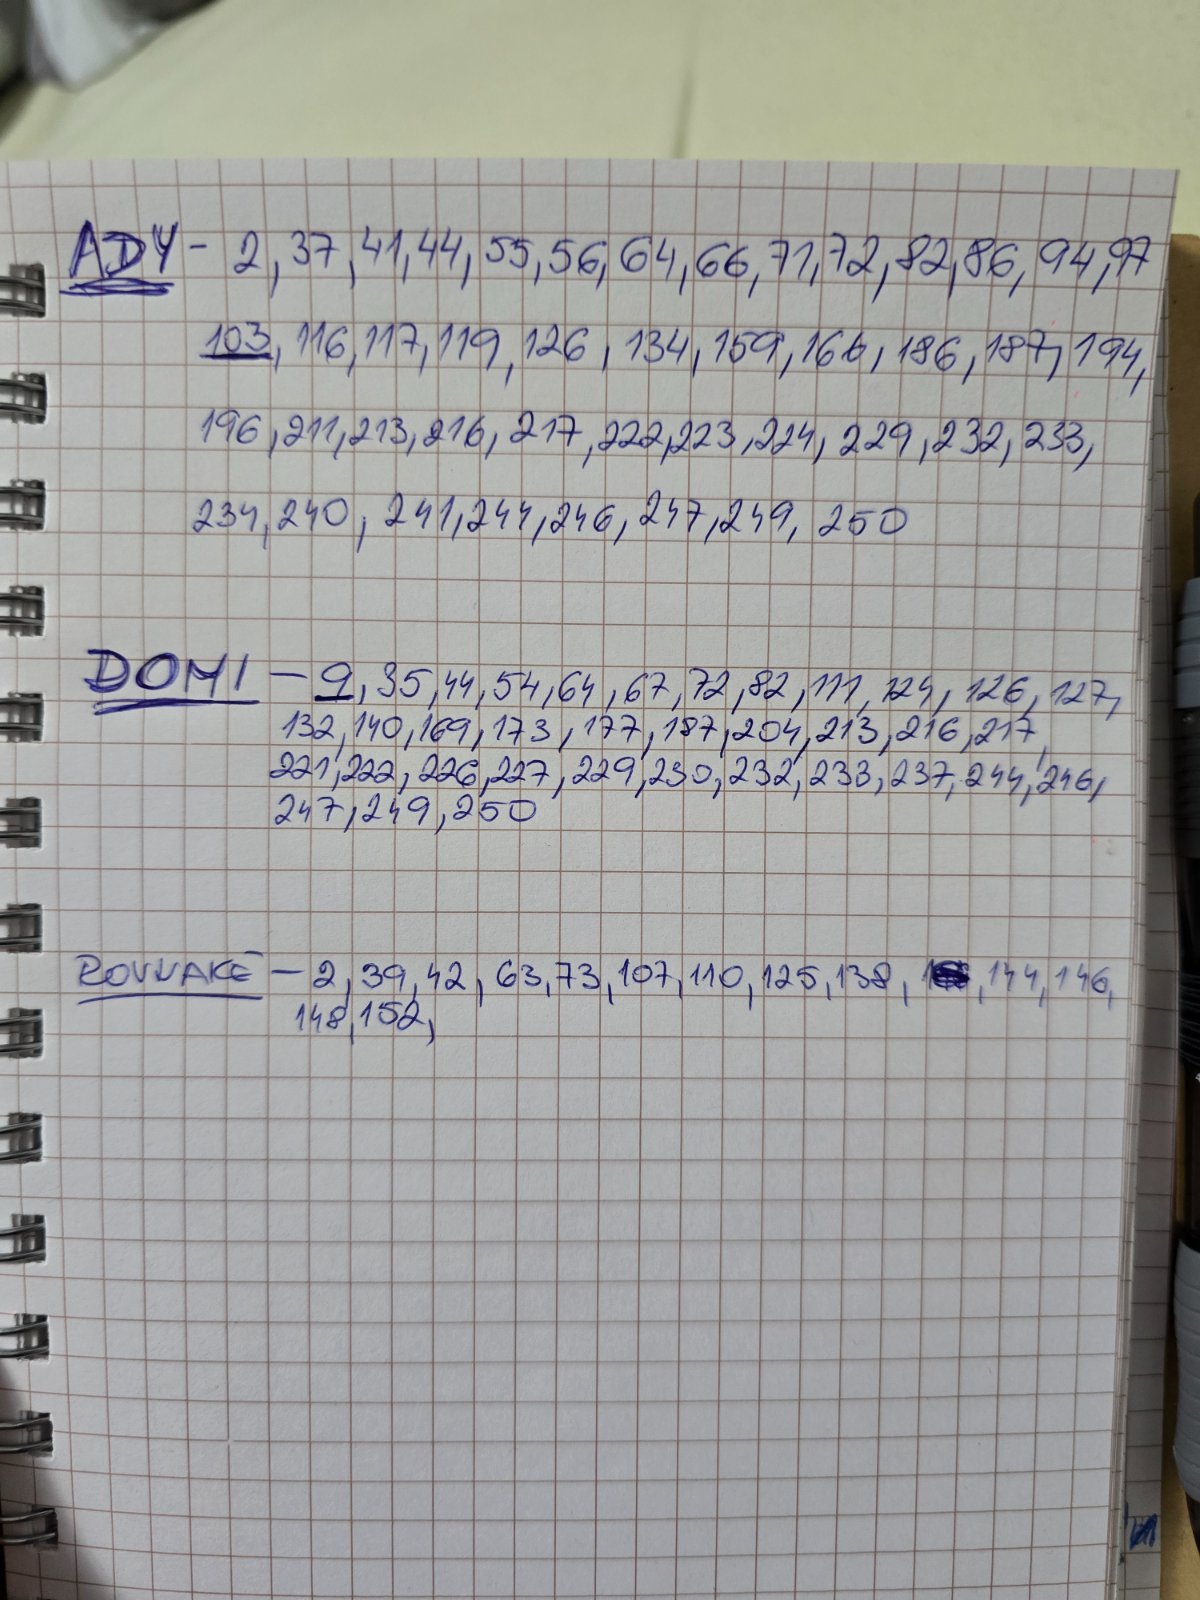 ADY - 2, 37, 41, 44, 55, 56, 64, 66, 71, 72, 82, 86, 94, 97
103, 116, 117, 119, 126, 134, 159, 166, 186, 187, 194,
196, 211, 213, 216, 217, 222, 223, 224, 229, 232, 233,
234, 240, 241, 244, 246, 247, 249, 250
DOMI - 9, 35, 44, 54, 64, 67, 72, 82, 111, 124, 126, 127,
132, 140, 169, 173, 177, 187, 204, 213, 216, 217,
221, 222, 226, 227, 229, 230, 232, 233, 237, 244, 246,
247, 249, 250
ROVNAKÉ - 2, 39, 42, 63, 73, 107, 110, 125, 138, 144, 146,
148, 152,